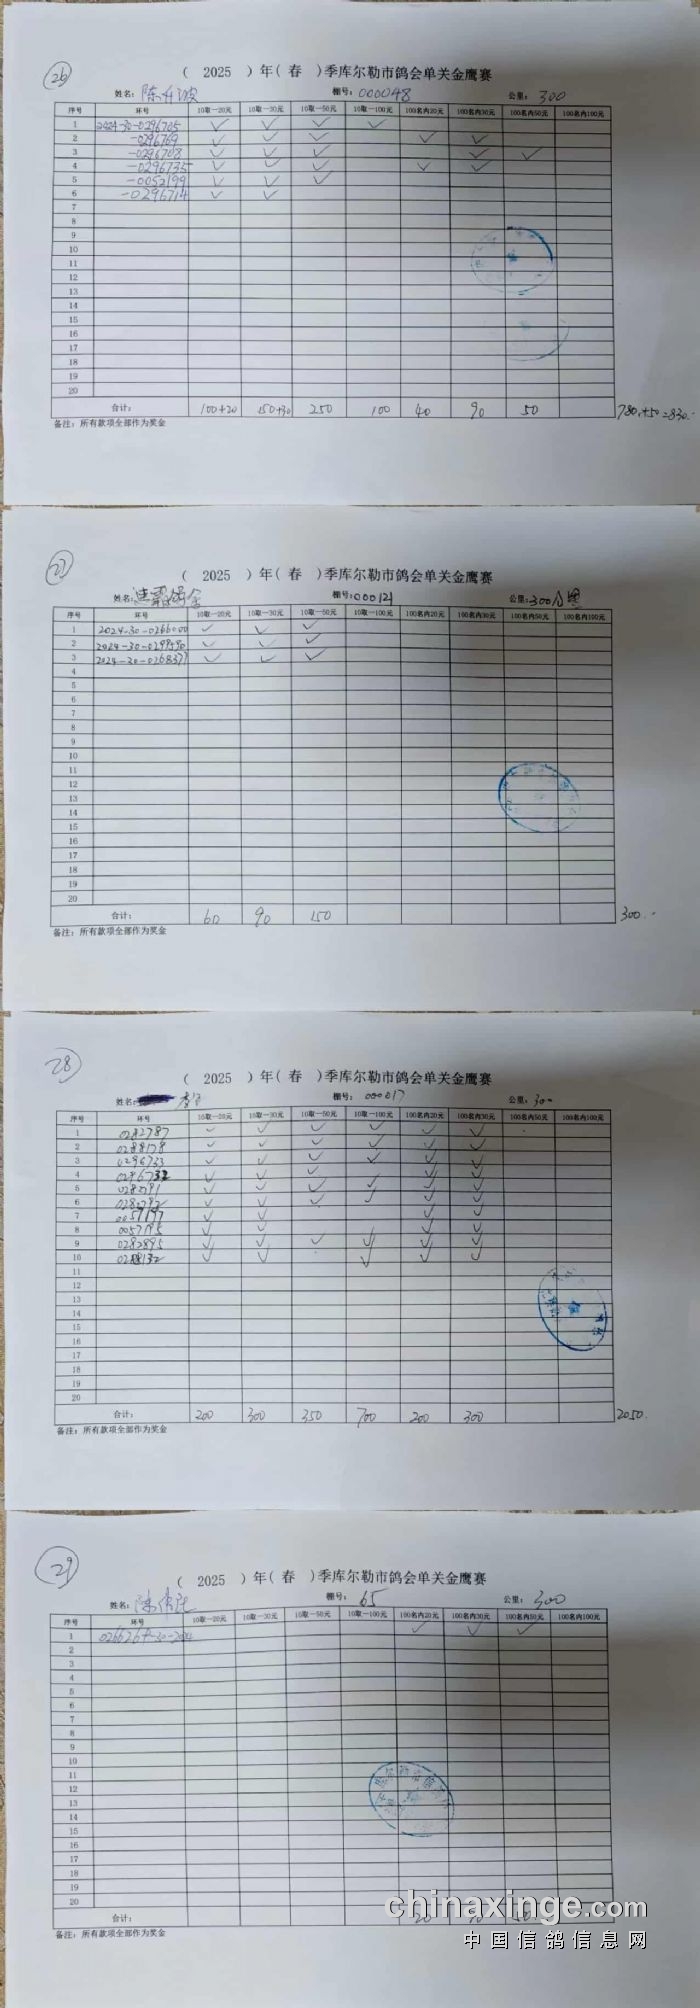 26
( 2025 )年( 春 )季库尔勒市鸽会单关金鹰赛
姓名: 陈升波 棚号: 000048 公里: 300
序号 环号 10取一20元 10取一30元 10取一50元 10取一100元 100名内20元 100名内30元 100名内50元 100名内100元
1 2024-30-0296705 ✓ ✓ ✓ ✓
2 -0296769 ✓ ✓ ✓ ✓ ✓
3 -0296708 ✓ ✓ ✓ ✓ ✓
4 -0296735 ✓ ✓ ✓ ✓ ✓
5 -0052199 ✓ ✓ ✓
6 -0296714 ✓ ✓
7
8
9
10
11
12
13
14
15
16
17
18
19
20
合计: 100+20 150+30 250 100 40 90 50 780+50=830.
备注: 所有款项全部作为奖金
27
( 2025 )年( 春 )季库尔勒市鸽会单关金鹰赛
姓名: 棚号: 000121 公里: 300公里
序号 环号 10取一20元 10取一30元 10取一50元 10取一100元 100名内20元 100名内30元 100名内50元 100名内100元
1 2024-30-0266000 ✓ ✓ ✓
2 2024-30-0299590 ✓ ✓ ✓
3 ✓ ✓ ✓
4
5
6
7
8
9
10
11
12
13
14
15
16
17
18
19
20
合计: 60 90 150 300.
备注: 所有款项全部作为奖金
28
( 2025 )年( 春 )季库尔勒市鸽会单关金鹰赛
姓名: 棚号: 000017 公里: 300
序号 环号 10取一20元 10取一30元 10取一50元 10取一100元 100名内20元 100名内30元 100名内50元 100名内100元
1 0282787 ✓ ✓ ✓ ✓ ✓ ✓
2 0288178 ✓ ✓ ✓ ✓ ✓ ✓
3 0296733 ✓ ✓ ✓ ✓ ✓ ✓
4 0296732 ✓ ✓ ✓ ✓ ✓
5 ✓ ✓ ✓ ✓ ✓ ✓
6 ✓ ✓ ✓ ✓ ✓ ✓
7 0057197 ✓ ✓ ✓ ✓
8 0057195 ✓ ✓ ✓ ✓
9 0282895 ✓ ✓ ✓ ✓ ✓ ✓
10 0288132 ✓ ✓ ✓ ✓ ✓
11
12
13
14
15
16
17
18
19
20
合计: 200 300 350 700 200 300 2050.
备注: 所有款项全部作为奖金
29
( 2025 )年( 春 )季库尔勒市鸽会单关金鹰赛
姓名: 棚号: 65 公里: 300
序号 环号 10取一20元 10取一30元 10取一50元 10取一100元 100名内20元 100名内30元 100名内50元 100名内100元
1 0266264-30-2024 ✓ ✓ ✓
2
3
4
5
6
7
8
9
10
11
12
13
14
15
16
17
18
19
20
合计: 20
备注: 所有款项全部作为奖金
chinaxinge.com
中国信鸽信息网